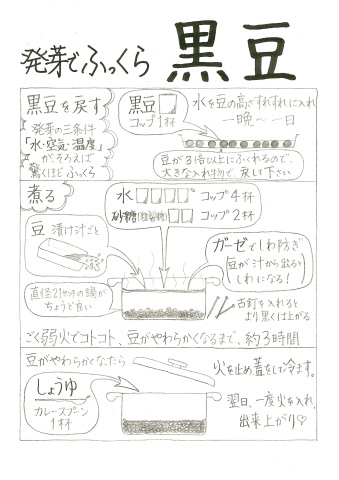 発芽でふっくら 黒豆
黒豆を戻す
発芽の三条件
「水・空気・温度」
がそろえば
驚くほどふっくら
黒豆
コップ1杯
水を豆の高さすれすれに入れ
一晩〜一日
豆が3倍以上にふくれるので、
大きな入れ物で、戻して下さい
煮る
水 コップ4杯
砂糖 コップ2杯
豆 漬け汁ごと
直径21センチの鍋が
ちょうど良い
ガーゼでしわ防ぎ
豆が汁から出ると
しわになる!
古釘を入れると
より黒く仕上がる
ごく弱火でコトコト、豆がやわらかくなるまで、約3時間
豆がやわらかくなったら
しょうゆ
カレースプーン
1杯
火を止め蓋をして冷ます。
翌日、一度火を入れ、
出来上がり♡